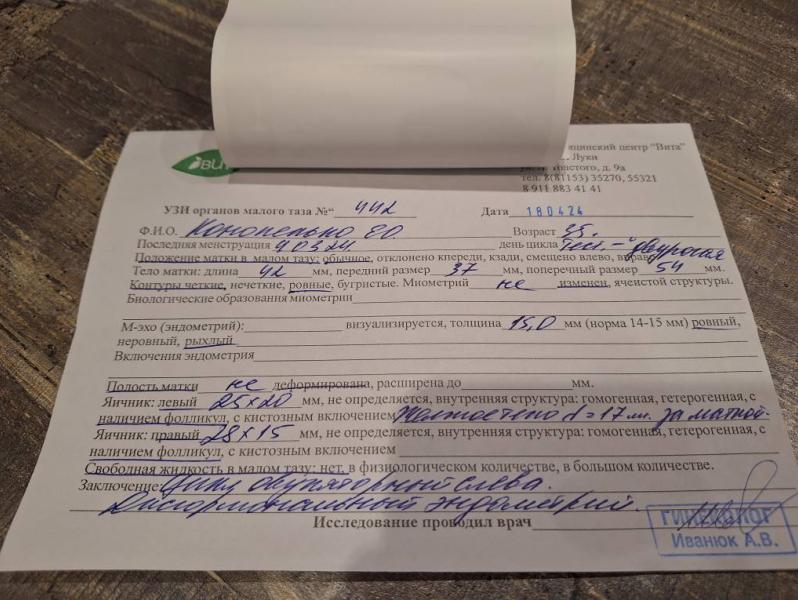 ВИТ
ицинский центр "Вита"
Луки
ул. Толстого, д. 9а
тел. 8(81153) 35270, 55321
8 911 883 41 41
УЗИ органов малого таза №“ 442 Дата 180424
Ф.И.О. Кононелько Е.О. Возраст 35.
Последняя менструация 90324 день цикла Тест. – "двурогая
Положение матки в малом тазу: обычное, отклонено кпереди, кзади, смещено влево, вправо
Тело матки: длина 42 мм, передний размер 37 мм, поперечный размер 54 мм.
Контуры четкие, нечеткие, ровные, бугристые. Миометрий не изменен, ячеистой структуры.
Биологические образования миометрии
М-эхо (эндометрий): визуализируется, толщина 15,0 мм (норма 14-15 мм) ровный,
неровный, рыхлый
Включения эндометрия
Полость матки не деформирована, расширена до мм.
Яичник: левый 25х20 мм, не определяется, внутренняя структура: гомогенная, гетерогенная, с
наличием фолликул, с кистозным включением желтое тело d=17мм. за маткой.
Яичник: правый 28х15 мм, не определяется, внутренняя структура: гомогенная, гетерогенная, с
наличием фолликул, с кистозным включением
Свободная жидкость в малом тазу: нет, в физиологическом количестве, в большом количестве.
Заключение: Цикл овуляторный слева.
Дисгормональный эндометрий.
Исследование проводил врач
ГИНЕКОЛОГ
Иванюк А.В.